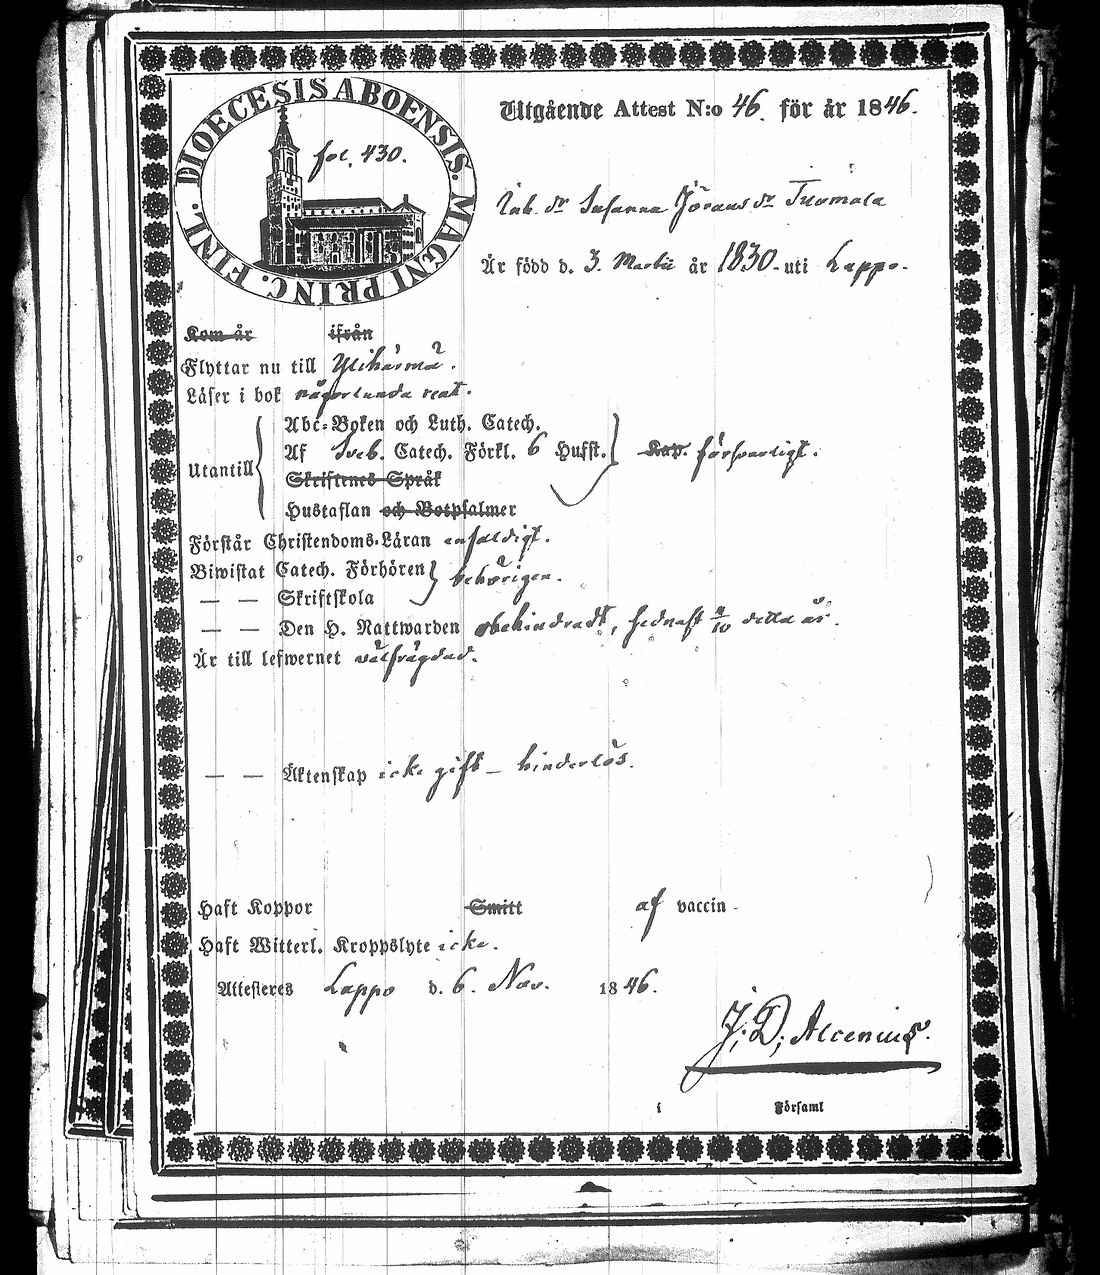 DIOECESIS ABOENSIS. MAGNI PRINC. FINL.
fol. 430.
Utgående Attest N:o 46. för år 1846.
Inh. dr Susanna Jöransdr Tuomala
Är född d. 3. Martii år 1830 - uti Lappo.
Kom år ifrån
Flyttar nu till Ylihärmä.
Läser i bok någorlunda rent.
Utantill
Abc-Boken och Luth. Catech.
Af Sveb. Catech. Förkl. 6 Hufst. Kap. försvarligt.
Skriftenes Språk
Hustaflan och Botpsalmer
Förstår Christendoms-Läran enfaldigt.
Biwistat Catech. Förhören behörigen.
— — Skriftskola
— — Den H. Nattwarden obehindradt, sednast /10 detta år.
Är till lefwernet välfrägdad.
— — Äktenskap icke gift — hinderlös.
Haft Koppor Smitt af vaccin -
Haft Witterl. Kroppslyte icke.
Attesteras Lappo d. 6. Nov. 1846.
J. D. Alcenius.
i Församl